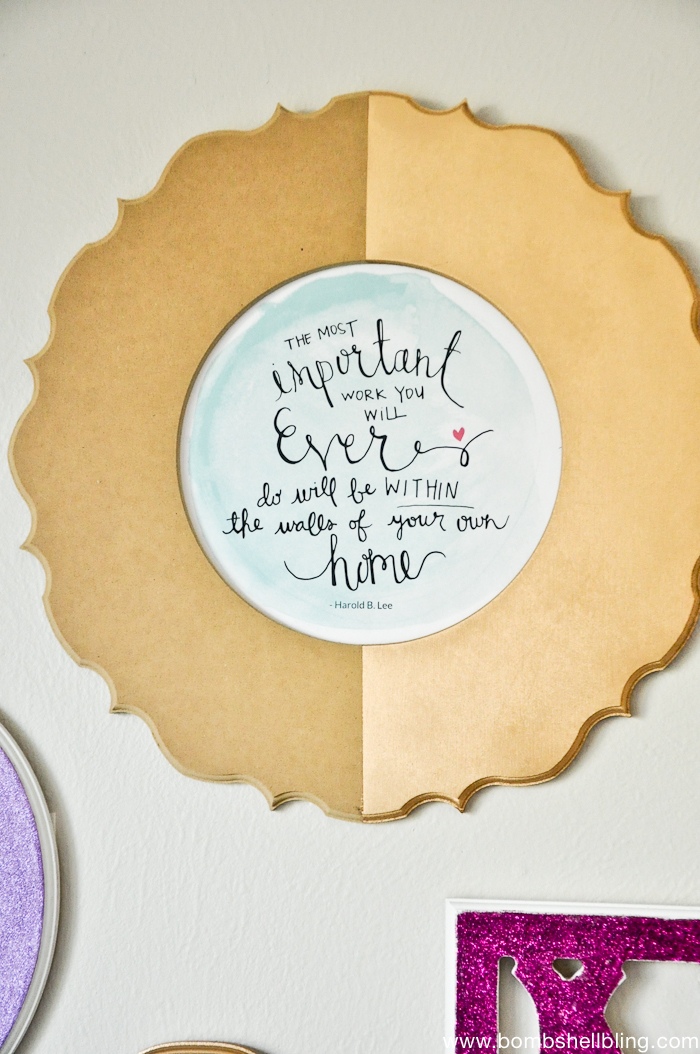 THE MOST
important
WORK YOU
WILL
Ever
do will be WITHIN
the walls of your own
home
- Harold B. Lee
www.bombshellbling.com